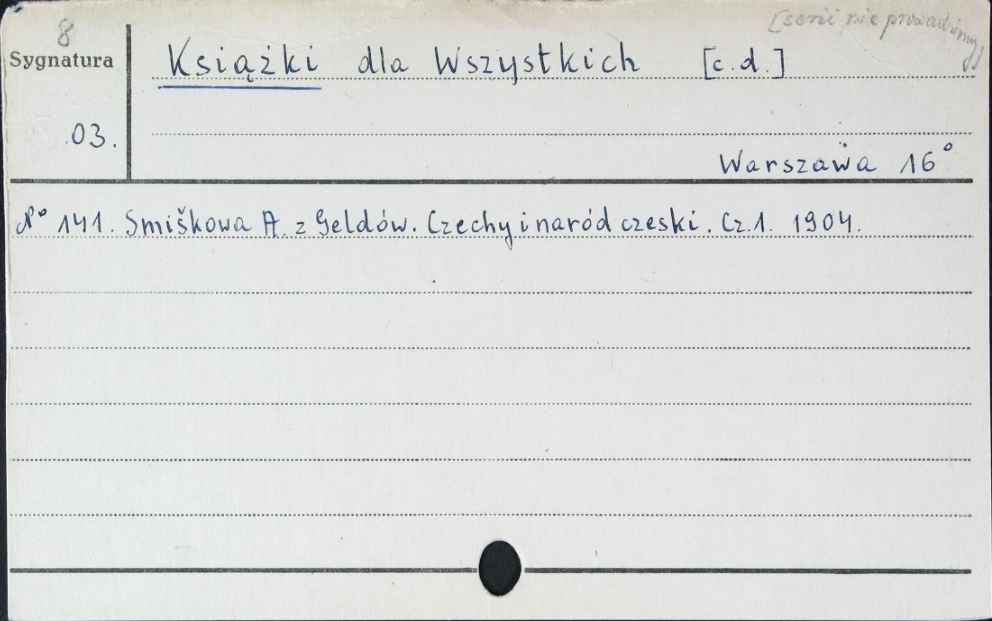 8
[serii nie prowadzimy]
Sygnatura
Książki dla Wszystkich [c.d.]
03.
Warszawa 16°
N° 141. Smiškowa A. z Geldów. Czechy i naród czeski. Cz.1. 1904.